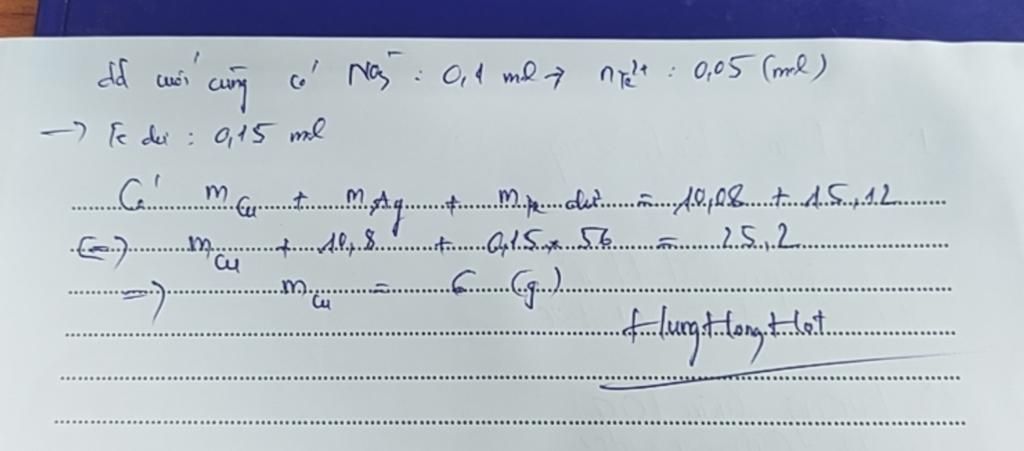 dd cuối cùng có NO3- : 0,1 mol → nFe2+ : 0,05 (mol)
→ Fe dư : 0,15 mol
Có mCu + mAg + mFe dư = 10,08 + 15,12
(=) mCu + 10,8 + 0,15 x 56 = 25,2
=) mCu = 6 (g)
HungHongHot